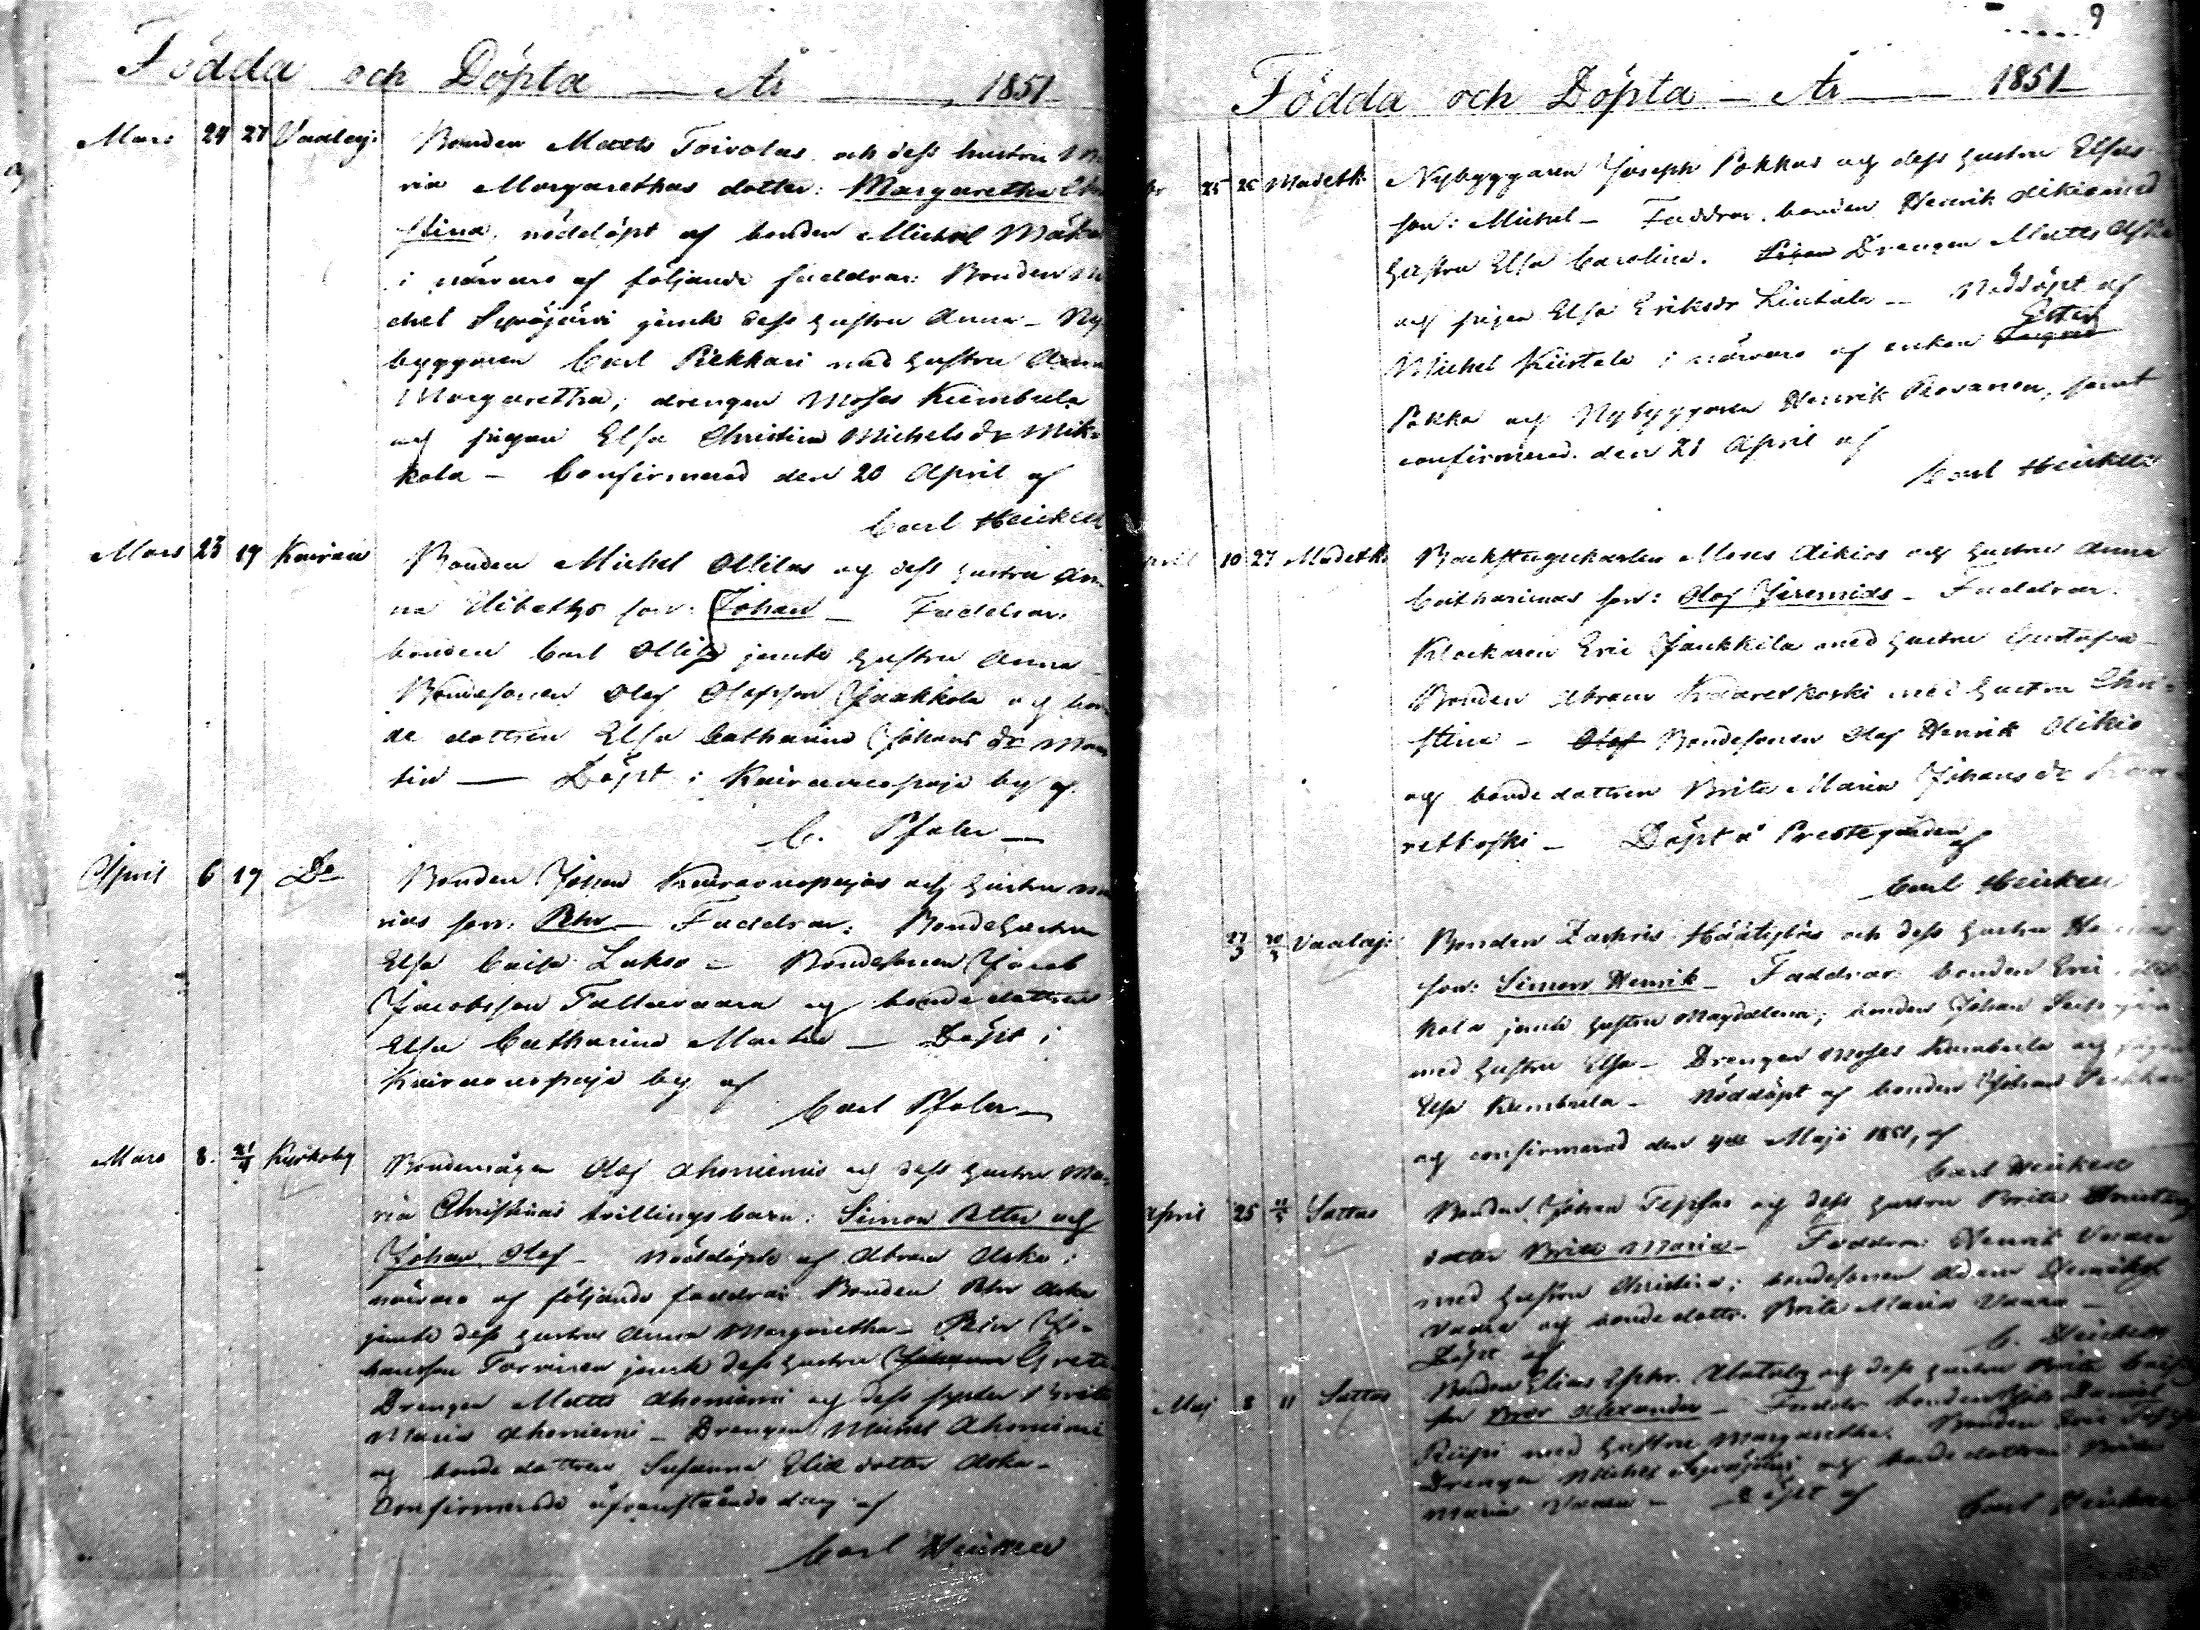 Födda och Döpta — År — 1851
Mars 24 27 Vaalaj: Bonden Matts Toivolas och dess hustru Ma
ria Margarethas dotter: Margaretha Chri
stina, nöddöpt af bonden Michel
i närvaro af följande faddrar: Bonden Mi
chel Syväjärvi jemte dess hustru Anna – Ny
byggaren Carl Piekkari med hustru Anna
Margaretha; drengen Moses Kumbula
och pigan Elsa Christina Michelsdr Mik-
kola – Confirmerad den 20 April af
Carl Heickell
Mars 23 19 Kairan Bonden Michel Ollilas og dess hustru An
na Elisabeths son: Johan – Faddrar:
bonden Carl Ollila jemte hustru Anna –
Bondesonen Olof Olofsson Jaakkola og bon
de dottren Elsa Catharina Johans dr Mar
tin — Döpt i Kairavuopaja by af
C. Pfaler —
April 6 19 Do Bonden Johan Kairavuopajas och hustru Ma
rias son: Petter – Faddrar: Bondehustrun
Elsa Caisa Lakso – Bondesonen Jacob
Jacobsson Tallavaara og bonde dottren
Elsa Catharina Martin – Döpt i
Kairavuopaja by af
Carl Pfaler —
Mars 8. 21/4 Kyrkoby Bondemågen Olof Ahoniemis og dess hustru Ma-
ria Christinas tvillingsbarn: Simon Petter och
Johan Olof – Nöddöpte af Abram Aska i
närvaro af följande faddrar: Bonden Petter Aska
jemte dess hustru Anna Margaretha – Petter Jo-
hansson Torvinen jemte dess hustru Greta
Drengen Matts Ahoniemi og dess syster Brita
Maria Ahoniemi – Drengen Michel Ahoniemi
og bonde dottren Susanna Elia dotter Aska –
Confirmerade ofvanstående dag af
Carl Heickell
9
Födda och Döpta – År — 1851
25 25 Madetk. Nybyggaren Joseph Pokkas och dess hustru Elsas
son: Michel – Faddrar: bonden Henrik Aikio med
hustru Elsa Carolina. Drengen Matts
och pigan Elsa Eriksdr – Nöddöpt af
Michel i närvaro af enkan
Pokka och Nybyggaren Henrik samt
confirmerad den 21 April af
Carl Heickell
April 10 27 Madetk. Backstugukarlen Moses Aikios och hustru Anna
Catharinas son: Olof Jeremias – Faddrar:
Klockaren Eric Jankkila med hustru Gustafva –
Bonden Abram Kaaretkoski med hustru Chri-
stina – Olof Bondesonen Olof Henrik Aikio
och bonde dottren Brita Maria Johans dr Kaa-
retkoski – Döpt å Prestegården af
Carl Heickell
27/3 Vaalaj: Bonden Zachris Hääteläs och dess hustru
son: Simon Henrik – Faddrar: bonden Eric Mik
kola jemte hustru Magdalena; bonden Johan
med hustru Elsa – Drengen Moses Kumbula och pigan
Elsa Kumbula – Nöddöpt af bonden Johan
og confirmerad den 4de Maji 1851, af
Carl Heickell
April 25 Sattas Bonden Johan Teppas og dess hustru Brita
dotter Brita Maria – Faddrar: Henrik Vaara
med hustru Christina; bondesonen Adam Henriks
Vaara og bonde dottr. Brita Maria Vaara –
Döpt af C. Heickell
Maj 8 11 Sattas Bonden Elias Ephr. Alatalo og dess hustru Brita Caisas
son Bror Alexander – Faddr. bonden Daniel
med hustru Margaretha. Bonden Eric
Drengen Michel Syväjärvi og bonde dottren Brita
Maria Vaara – Döpt af Carl Heickell